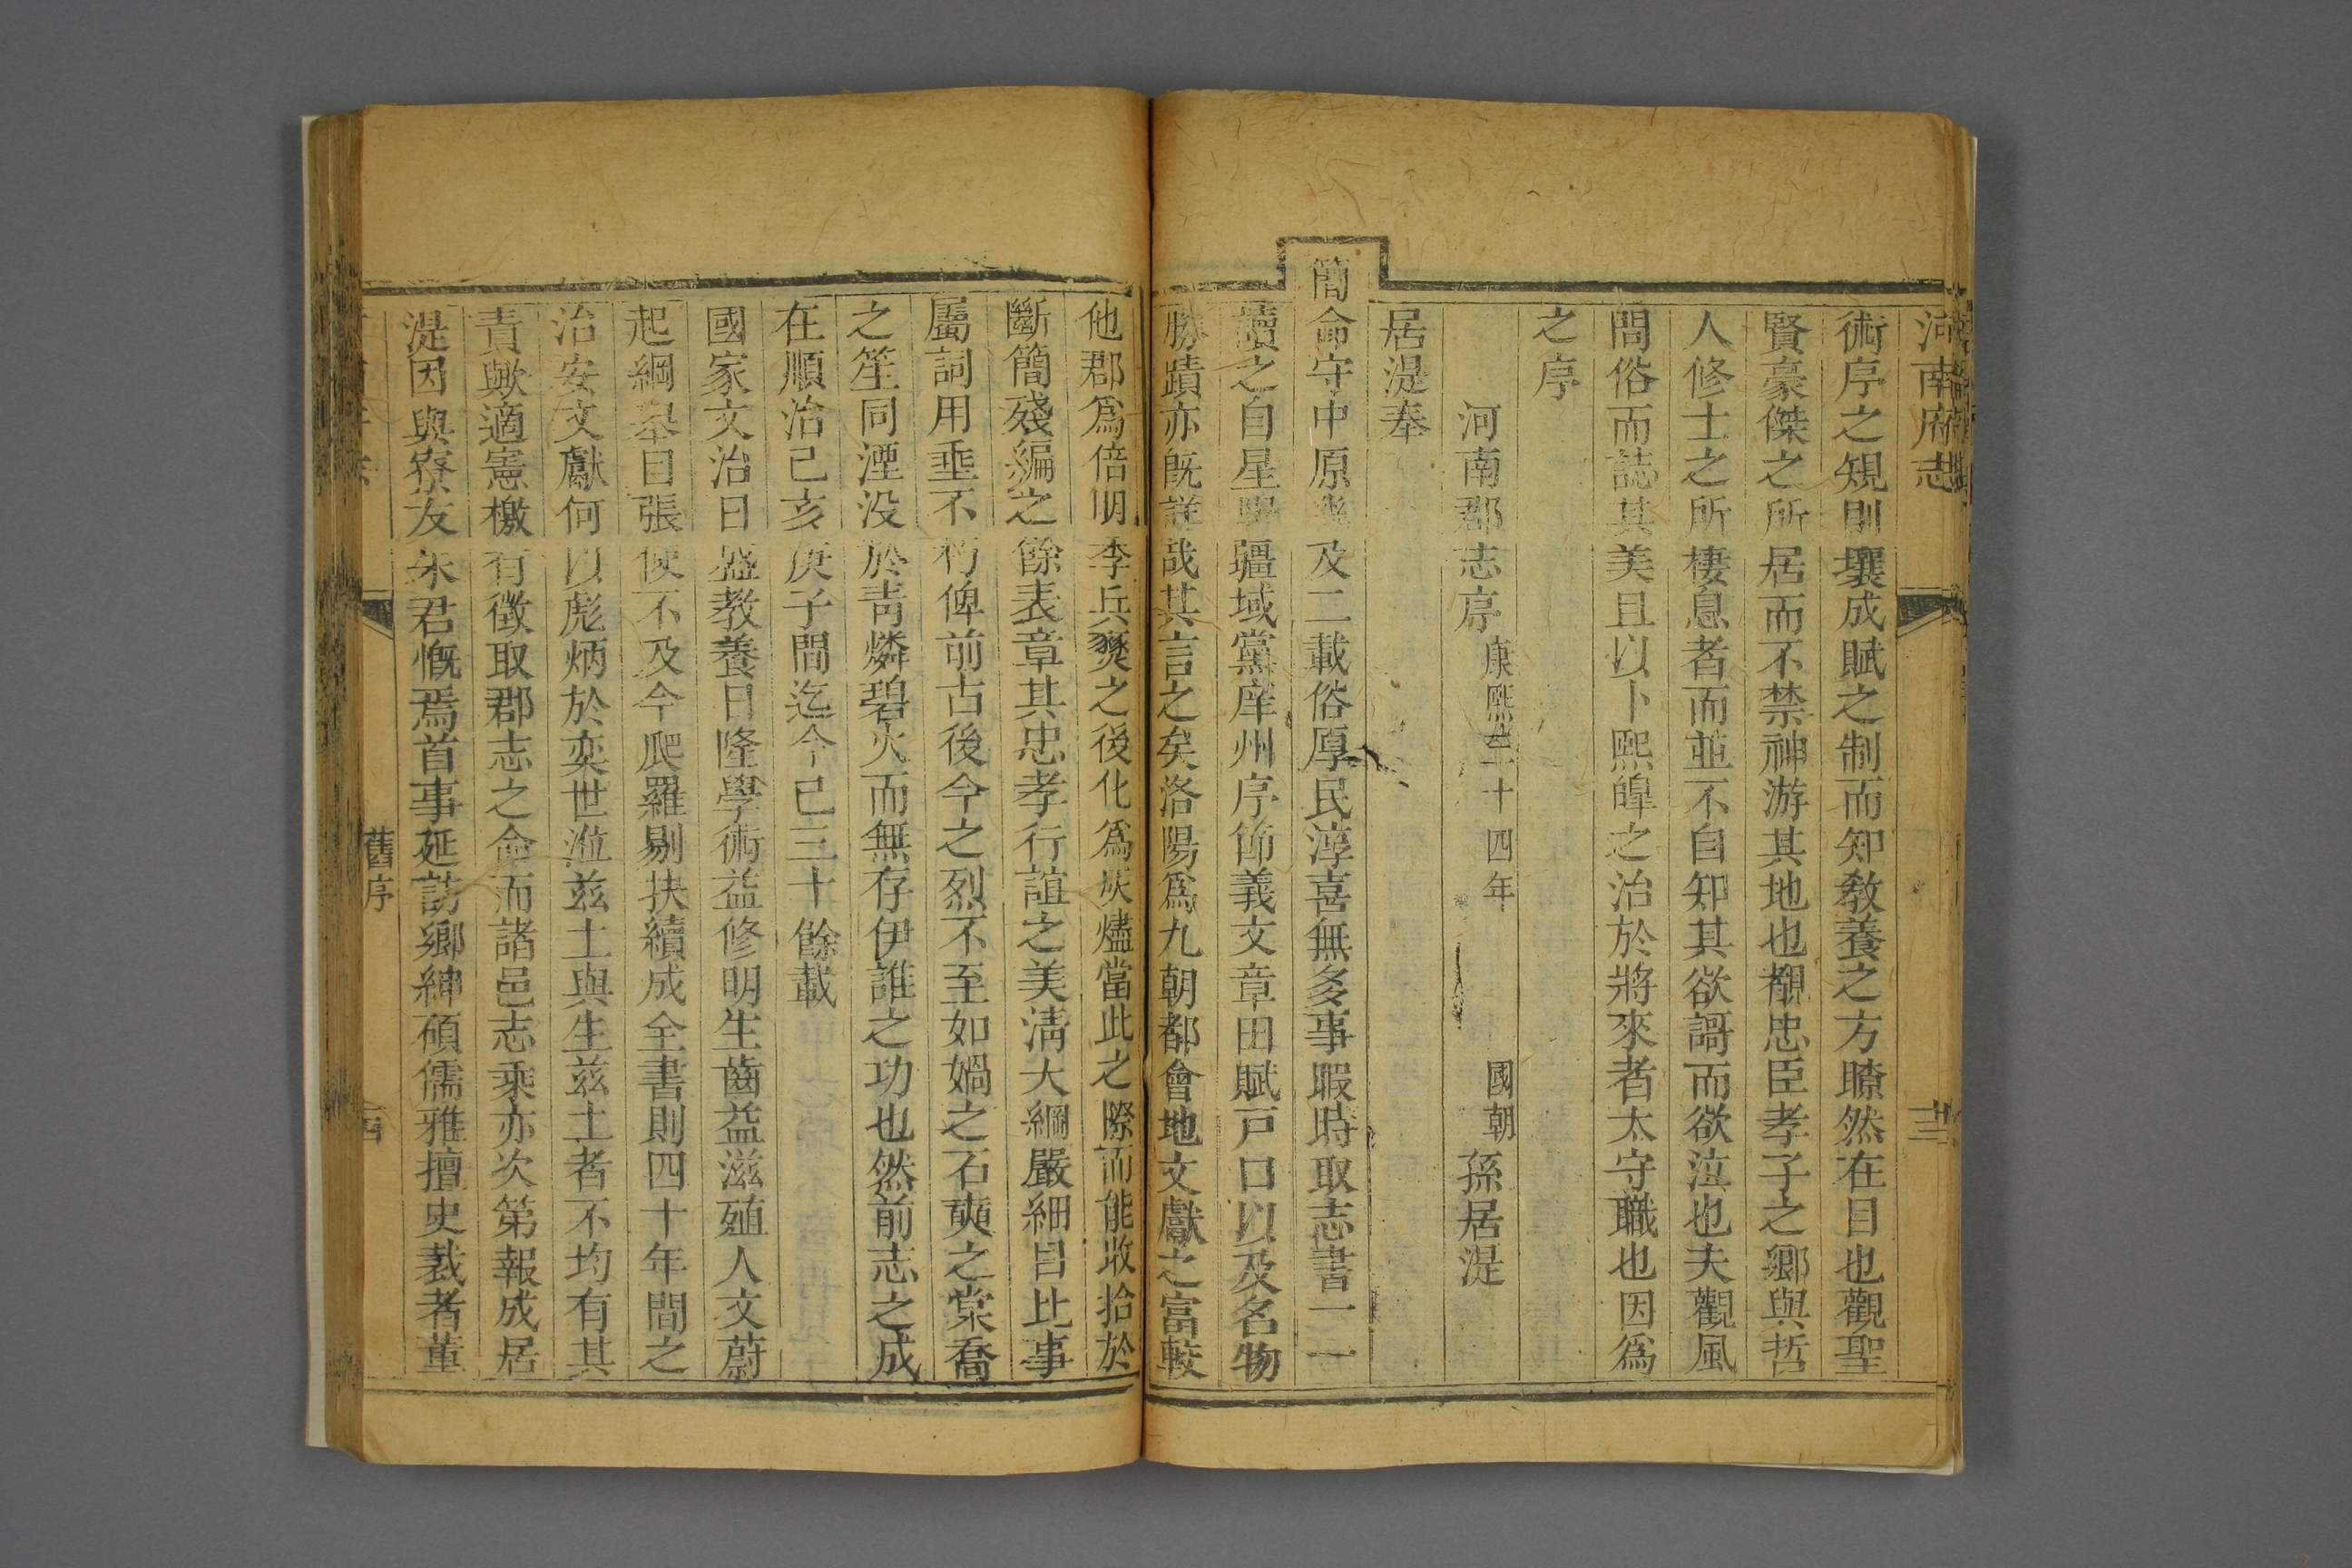 河南府志
術序之規則壤成賦之制而知教養之方瞭然在目也觀聖
賢豪傑之所居而不禁神游其地也覩忠臣孝子之鄉與哲
人修士之所棲息者而並不自知其欲謌而欲泣也夫觀風
問俗而誌其美且以卜熙皥之治於將來者太守職也因爲
之序
河南郡志序 康熙三十四年 國朝孫居湜
居湜奉
簡命守中原幾及二載俗厚民淳喜無多事暇時取志書一一
讀之自星野疆域黨庠州序節義文章田賦戸口以及名物
勝蹟亦旣詳哉其言之矣洛陽爲九朝都會地文獻之富較
他郡爲倍明季兵燹之後化爲灰燼當此之際而能收拾於
斷簡殘編之餘表章其忠孝行誼之美淸大綱嚴細目比事
屬詞用垂不朽俾前古後今之烈不至如媧之石奭之棠喬
之笙同湮没於靑燐碧火而無存伊誰之功也然前志之成
在順治己亥庚子間迄今已三十餘載
國家文治日盛教養日隆學術益修明生齒益滋殖人文蔚
起綱舉目張使不及今爬羅剔抉續成全書則四十年間之
治安文獻何以彪炳於奕世涖兹土與生兹土者不均有其
責歟適憲檄有徴取郡志之命而諸邑志乘亦次第報成居
湜因與寮友朱君慨焉首事延訪鄉紳碩儒雅擅史裁者董
舊序